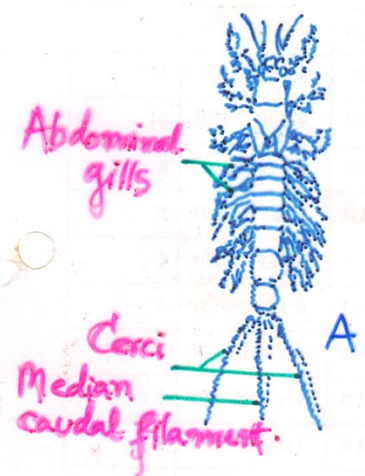 Abdominal
gills
A
Cerci
Median
caudal filament.